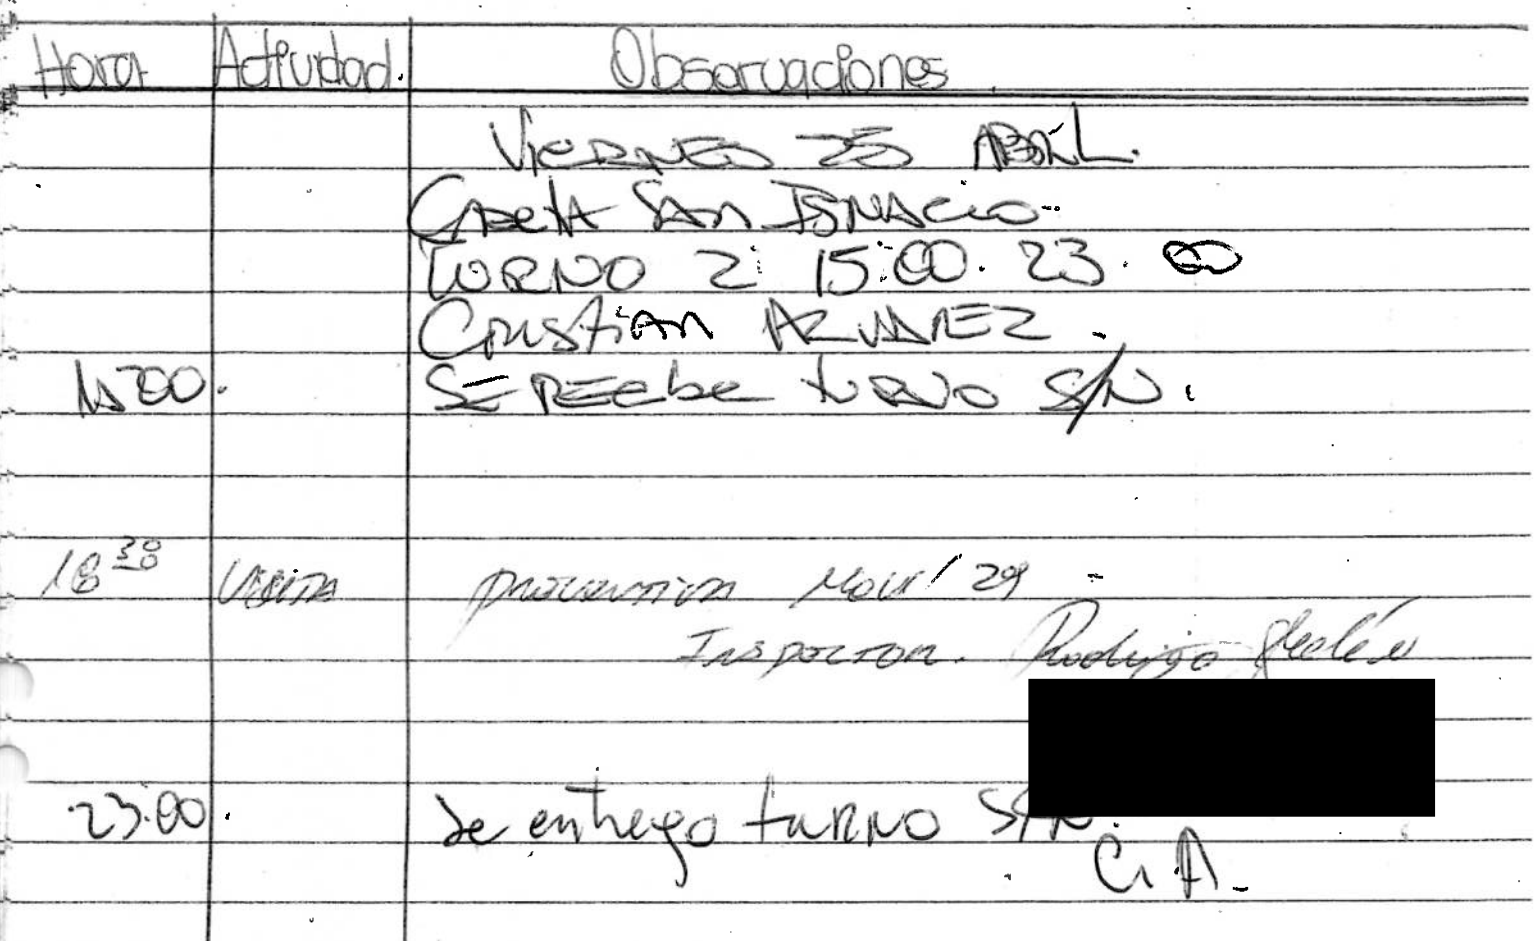 Hora Actividad. Observaciones
Viernes 25 Abril.
Caseta San Ignacio.
Turno 2 15:00. 23.00
Cristian Alvarez.
1500. Se recibe turno S/N.
18 30 Visita preventiva Movil 29
Inspector. Rodrigo
23.00. Se entrego turno S/N.
C. A.